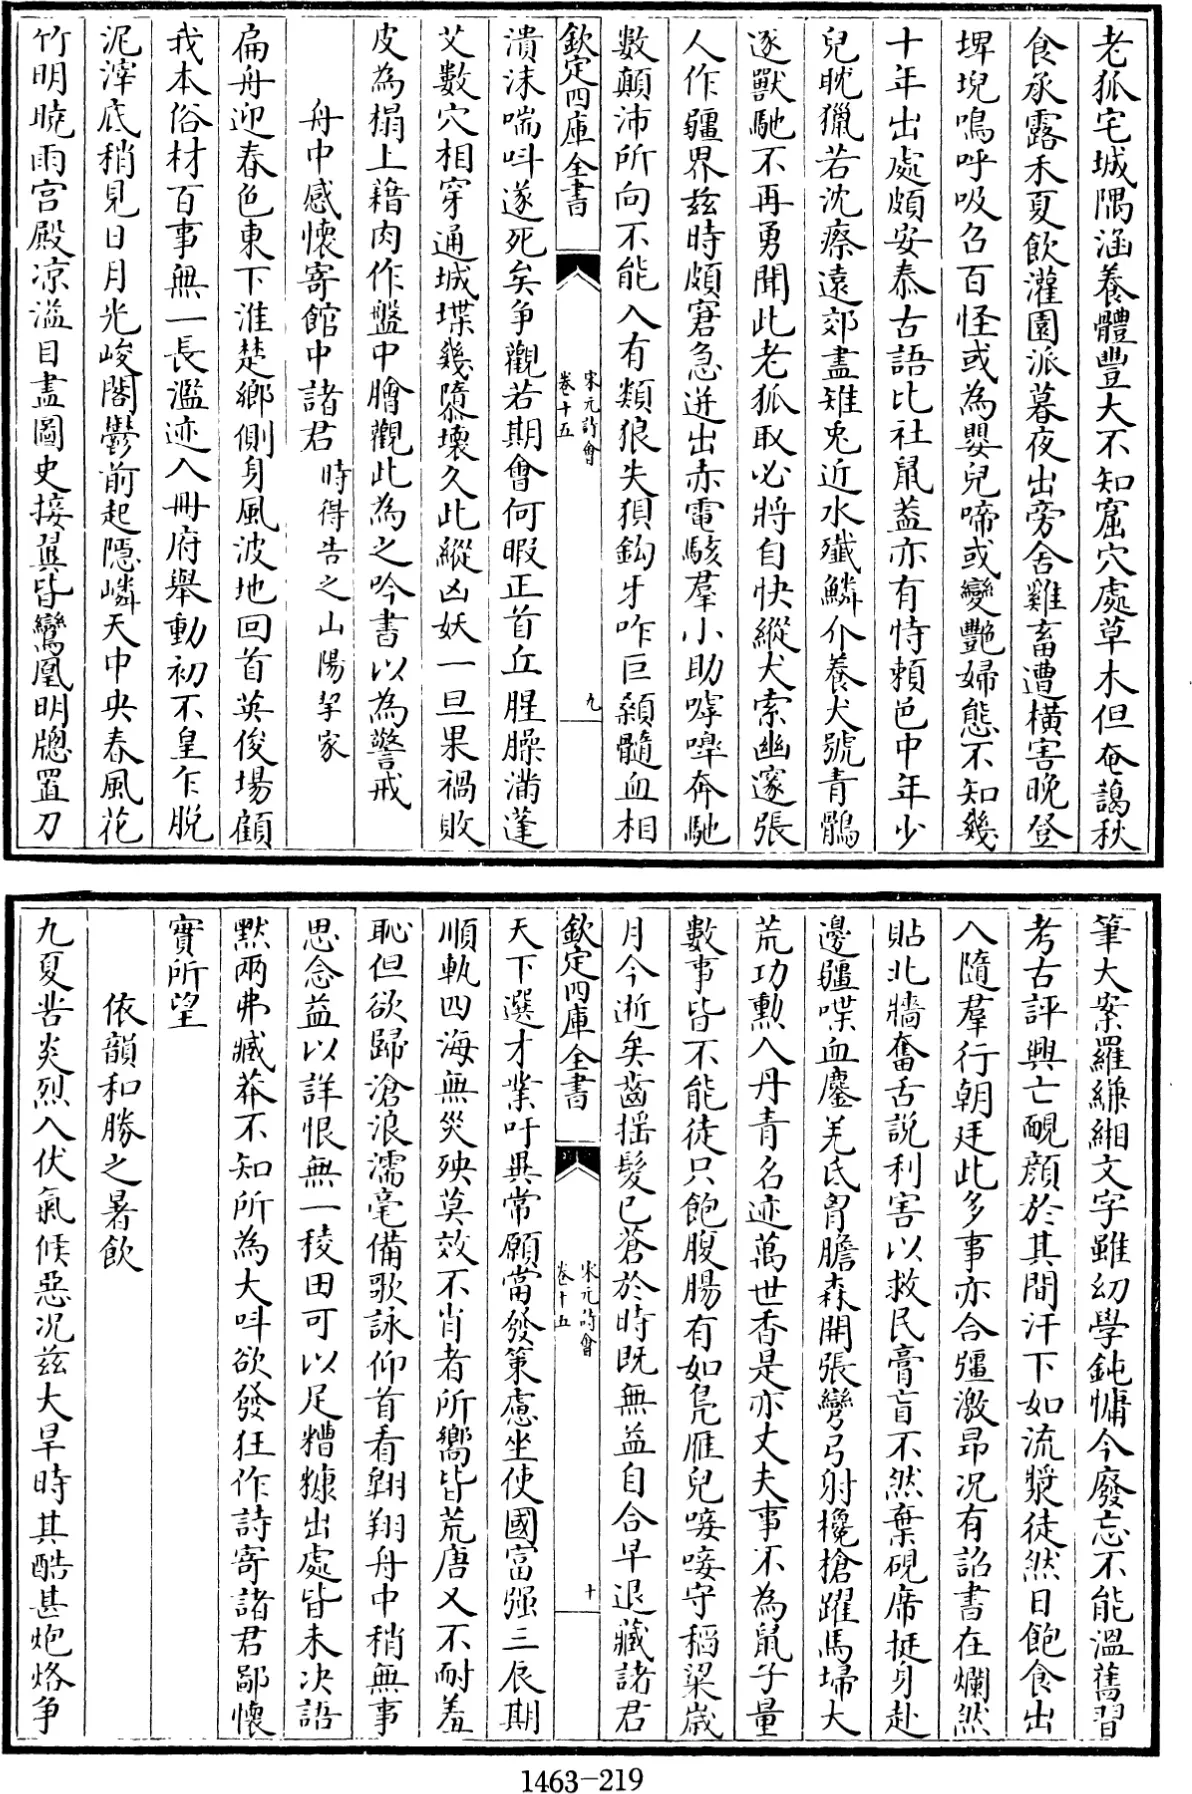 老狐宅城隅涵養體豐大不知窟穴處草木但奄藹秋
食承露禾夏飲灌園派暮夜出旁舍雞畜遭橫害晚登
埤堄鳴呼吸召百怪或為嬰兒啼或變艷婦態不知幾
十年出處頗安泰古語比社鼠蓋亦有恃頼邑中年少
兒耽獵若沈瘵遠郊盡雉兎近水殲鱗介養犬號青鶻
逐獸馳不再勇聞此老狐取必將自快縱犬索幽邃張
人作疆界兹時頗窘急迸出赤電駭羣小助嘑嘷奔馳
數顛沛所向不能入有類狼失狽鈎牙咋巨顙髓血相
欽定四庫全書
宋元詩會
卷十五
九
潰沫喘呌遂死矣争觀若期會何暇正首丘腥臊滿蓬
艾數穴相穿通城堞幾隳壞久此縱凶妖一旦果禍敗
皮為榻上藉肉作盤中膾觀此為之吟書以為警戒
舟中感懷寄館中諸君 時得告之山陽挈家
扁舟迎春色東下淮楚鄉側身風波地回首英俊場顧
我本俗材百事無一長濫迹入冊府舉動初不皇乍脱
泥滓底稍見日月光峻閣鬱前起隱嶙天中央春風花
竹明曉雨宫殿凉溢目盡圖史接翼皆鸞凰明牕置刀
筆大案羅縑緗文字雖幼學鈍慵今廢忘不能溫舊習
考古評興亡靦顔於其間汗下如流漿徒然日飽食出
入隨羣行朝廷此多事亦合彊激昂况有詔書在爛然
貼北牆奮舌說利害以救民膏肓不然棄硯席挺身赴
邊疆喋血鏖羌氐胷膽森開張彎弓射欃槍躍馬埽大
荒功勲入丹青名迹萬世香是亦丈夫事不為鼠子量
數事皆不能徒只飽腹腸有如鳬雁兒唼唼守稻粱歲
月今逝矣齒揺髮已蒼於時既無益自合早退藏諸君
欽定四庫全書
宋元詩會
卷十五
十
天下選才業吁異常願當發策慮坐使國富强三辰期
順軌四海無災殃莫效不肖者所嚮皆荒唐又不耐羞
恥但欲歸滄浪濡毫備歌詠仰首看翺翔舟中稍無事
思念益以詳恨無一稜田可以足糟糠出處皆未决語
黙兩弗臧莽不知所為大呌欲發狂作詩寄諸君鄙懷
實所望
依韻和勝之暑飲
九夏苦炎烈入伏氣候惡况兹大旱時其酷甚炮烙争
1463-219